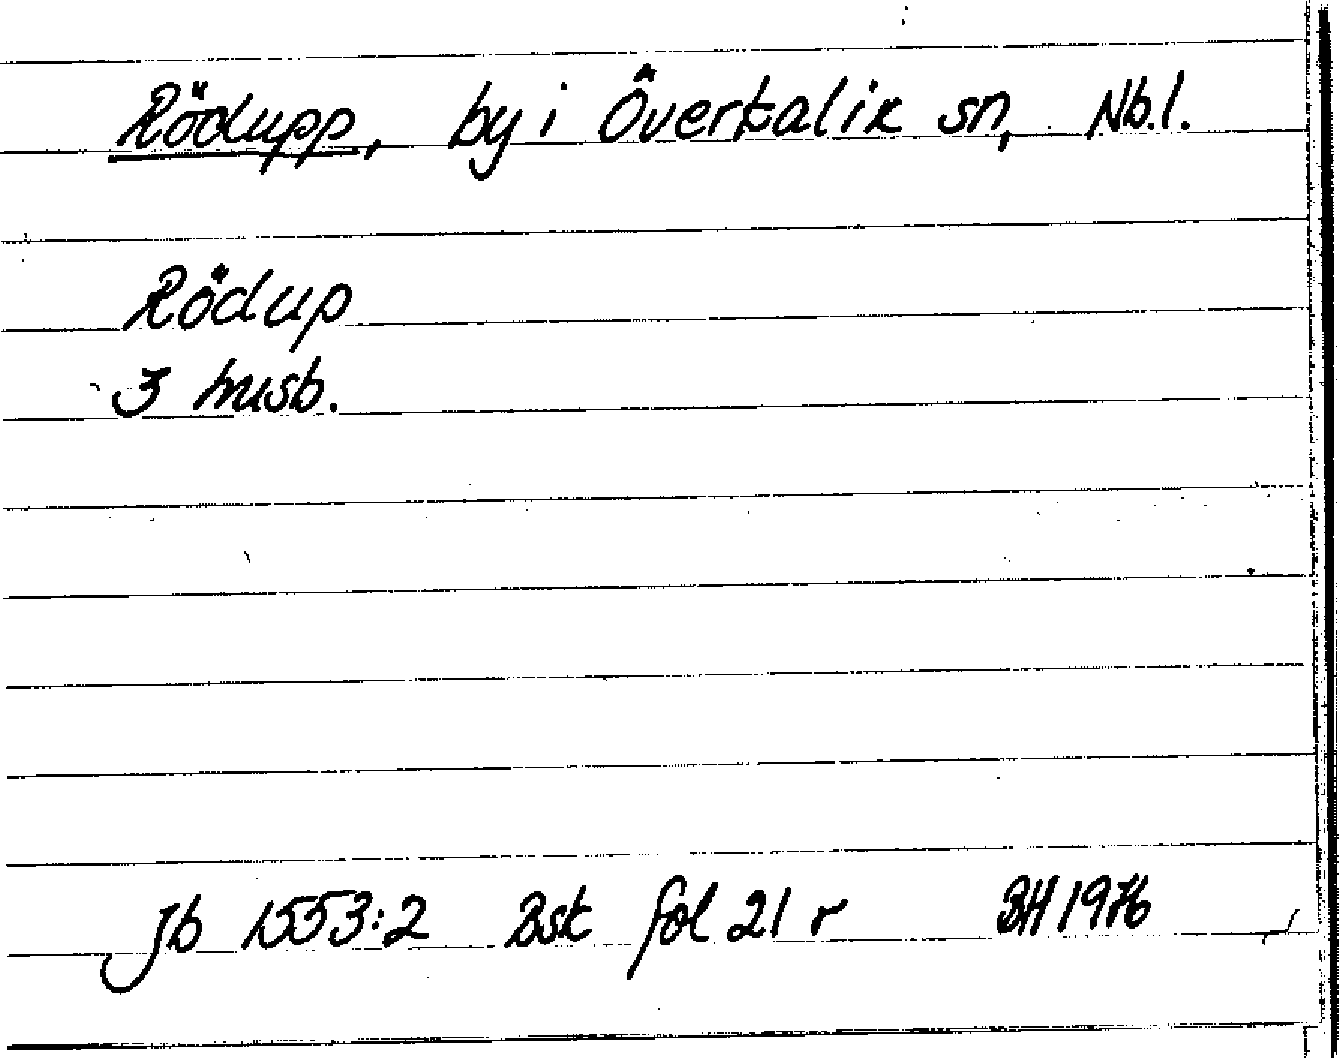 Rödupp, by i Överkalix sn, Nb.l.
Rödup
3 husb.
Jb 1553:2 Bst fol 21 r BH 1976